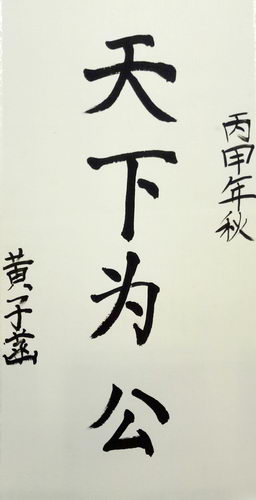 丙甲年秋
天下为公
黄子